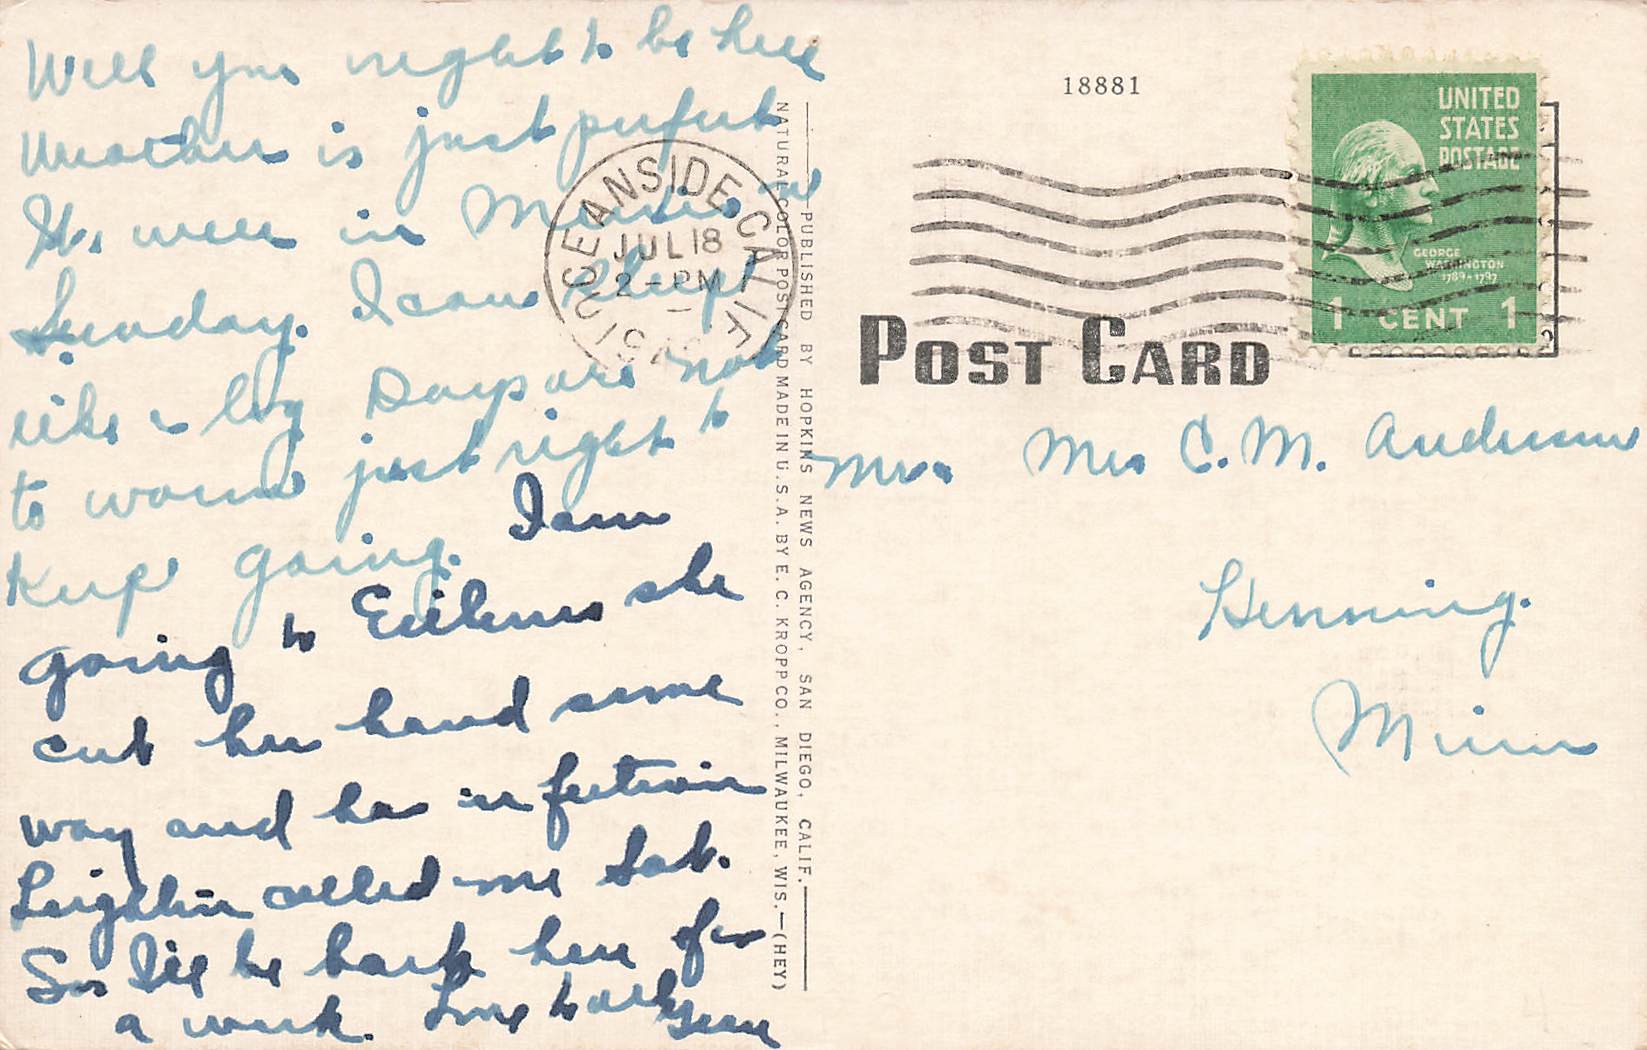 Well you ought to be here
Weather is just perfect
We were in Mexico on
Sunday. I can sleep
like a log Days are not
to warm just right to
Keep going. I am
going to Eileens she
cut her hand some
way and has infection
Leighton called me Sat.
So I'll be back here for
a week. Love to all
NATURAL COLOR POST CARD MADE IN U. S. A. BY E. C. KROPP CO., MILWAUKEE, WIS.—(HEY)
PUBLISHED BY HOPKINS NEWS AGENCY, SAN DIEGO, CALIF.
OCEANSIDE, CALIF.
JUL 18
2 - PM
18881
UNITED
STATES
POSTAGE
GEORGE
WASHINGTON
1789-1797
1 CENT 1
POST CARD
Mrs C. M. Anderson
Henning.
Minn